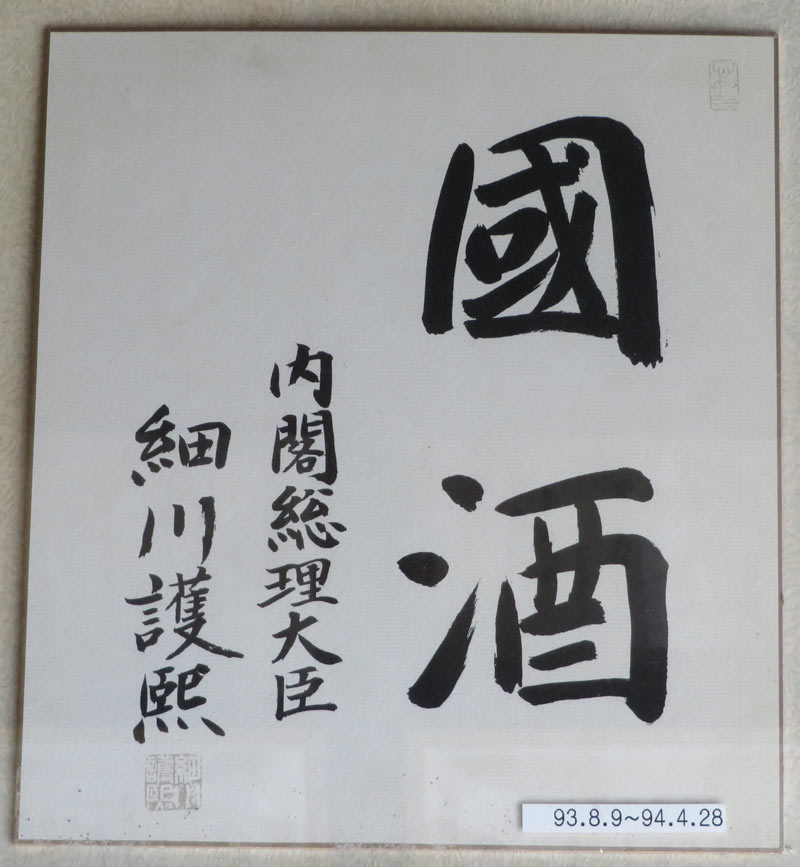 國酒
内閣総理大臣
細川護熙
93.8.9~94.4.28